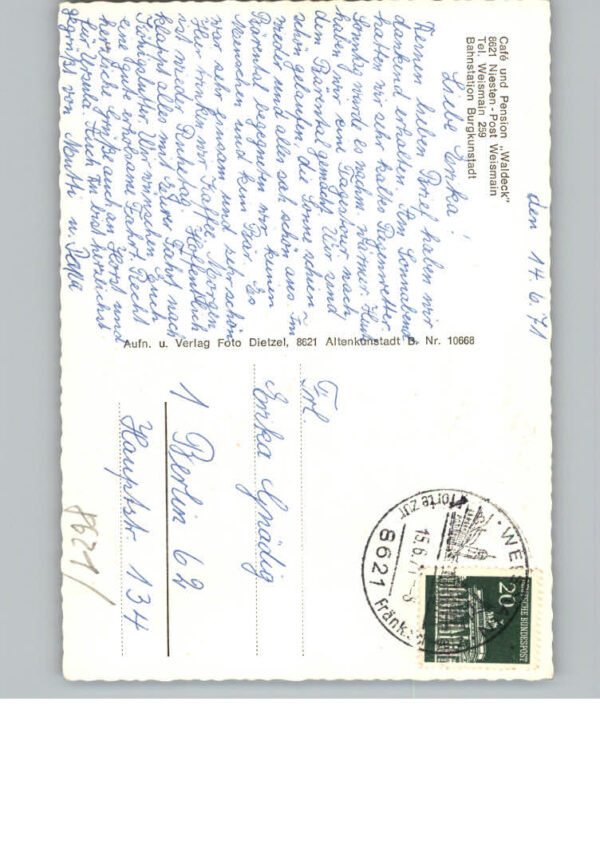 Café und Pension „Waldeck"
8621 Niesten - Post Weismain
Tel. Weismain 259
Bahnstation Burgkunstadt
den 14.6.71
Liebe Erika!
Deinen lieben Brief haben wir
dankend erhalten. Am Sonnabend
hatten wir sehr kaltes Regenwetter.
Sonntag wurde es wärmer. Heut
haben wir eine Tagestour nach
dem Bärental gemacht. Wir sind
schön gelaufen, die Sonne schien
wieder und alles sah schön aus. Im
Bärental begegneten wir keinen
Menschen und kein Bär. Es
war sehr einsam und sehr schön
Hier trinken wir Kaffee. Morgen
ist wieder Ruhetag. Hoffentlich
klappt alles mit Eurer Fahrt nach
Wir wünschen Euch
eine gute Fahrt. Recht
herzliche Grüße auch an Horst und
für Ursula. Auch Du bist herzlichst
gegrüßt von Mutti u. Papa
Aufn. u. Verlag Foto Dietzel, 8621 Altenkunstadt B. Nr. 10668
Frl.
Erika Gnädig
1 Berlin 62
Hauptstr. 134
8621/
8621
15.6.71
Pforte zur
fränk
WE
20
DEUTSCHE BUNDESPOST